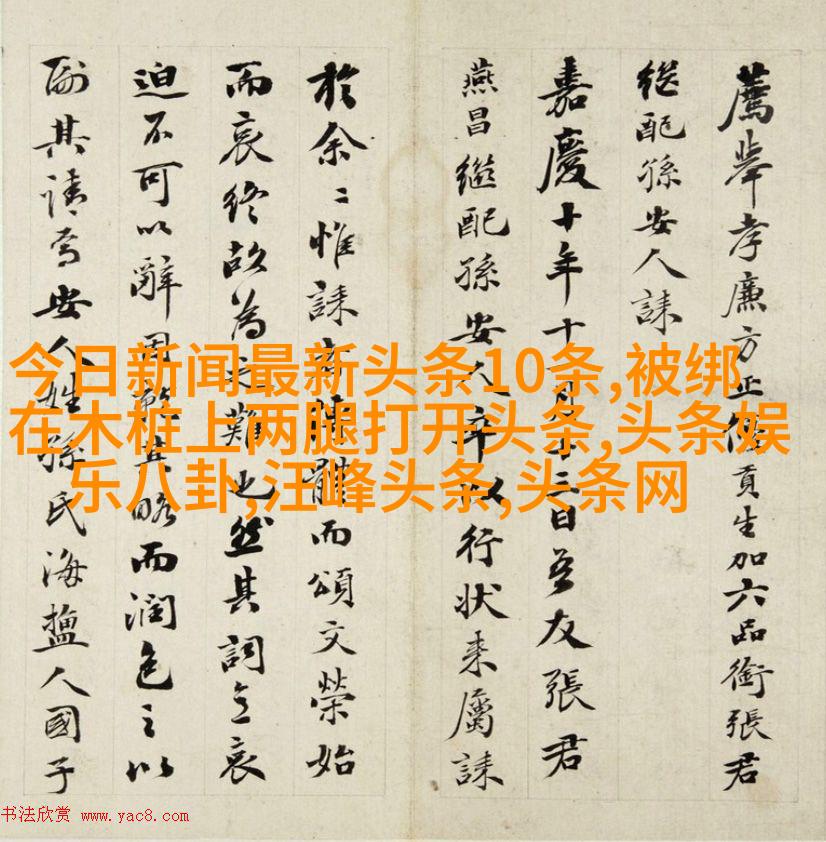 薦舉孝廉方正貢生加六品銜張君
繼配孫安人誄
嘉慶十年十月三日吾友張君
燕昌繼配孫安人卒以行状来屬誄
於余〻惟誄體而頌文榮始
而哀終故為之難也然其詞立哀
迫不可以辭因其略而潤色之以
副其請焉安人姓孫氏海鹽人國子
今日新闻最新头条10条,被绑
在木桩上两腿打开头条,头条娱
乐八卦,汪峰头条,头条网
书法欣赏 www.yac8.com